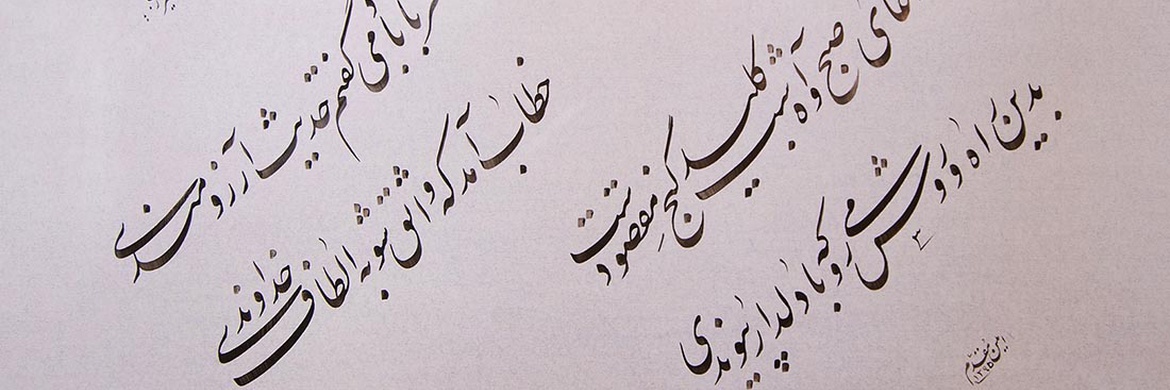 با باد می گفتم حدیث آرزومندی
خطاب آمد که واثق شو به الطاف خداوندی
صبح و آه شب کلید گنج مقصودست
بدین راه و روش می رو که با دلدار پیوندی
امین مقدم
۱۳۹۵